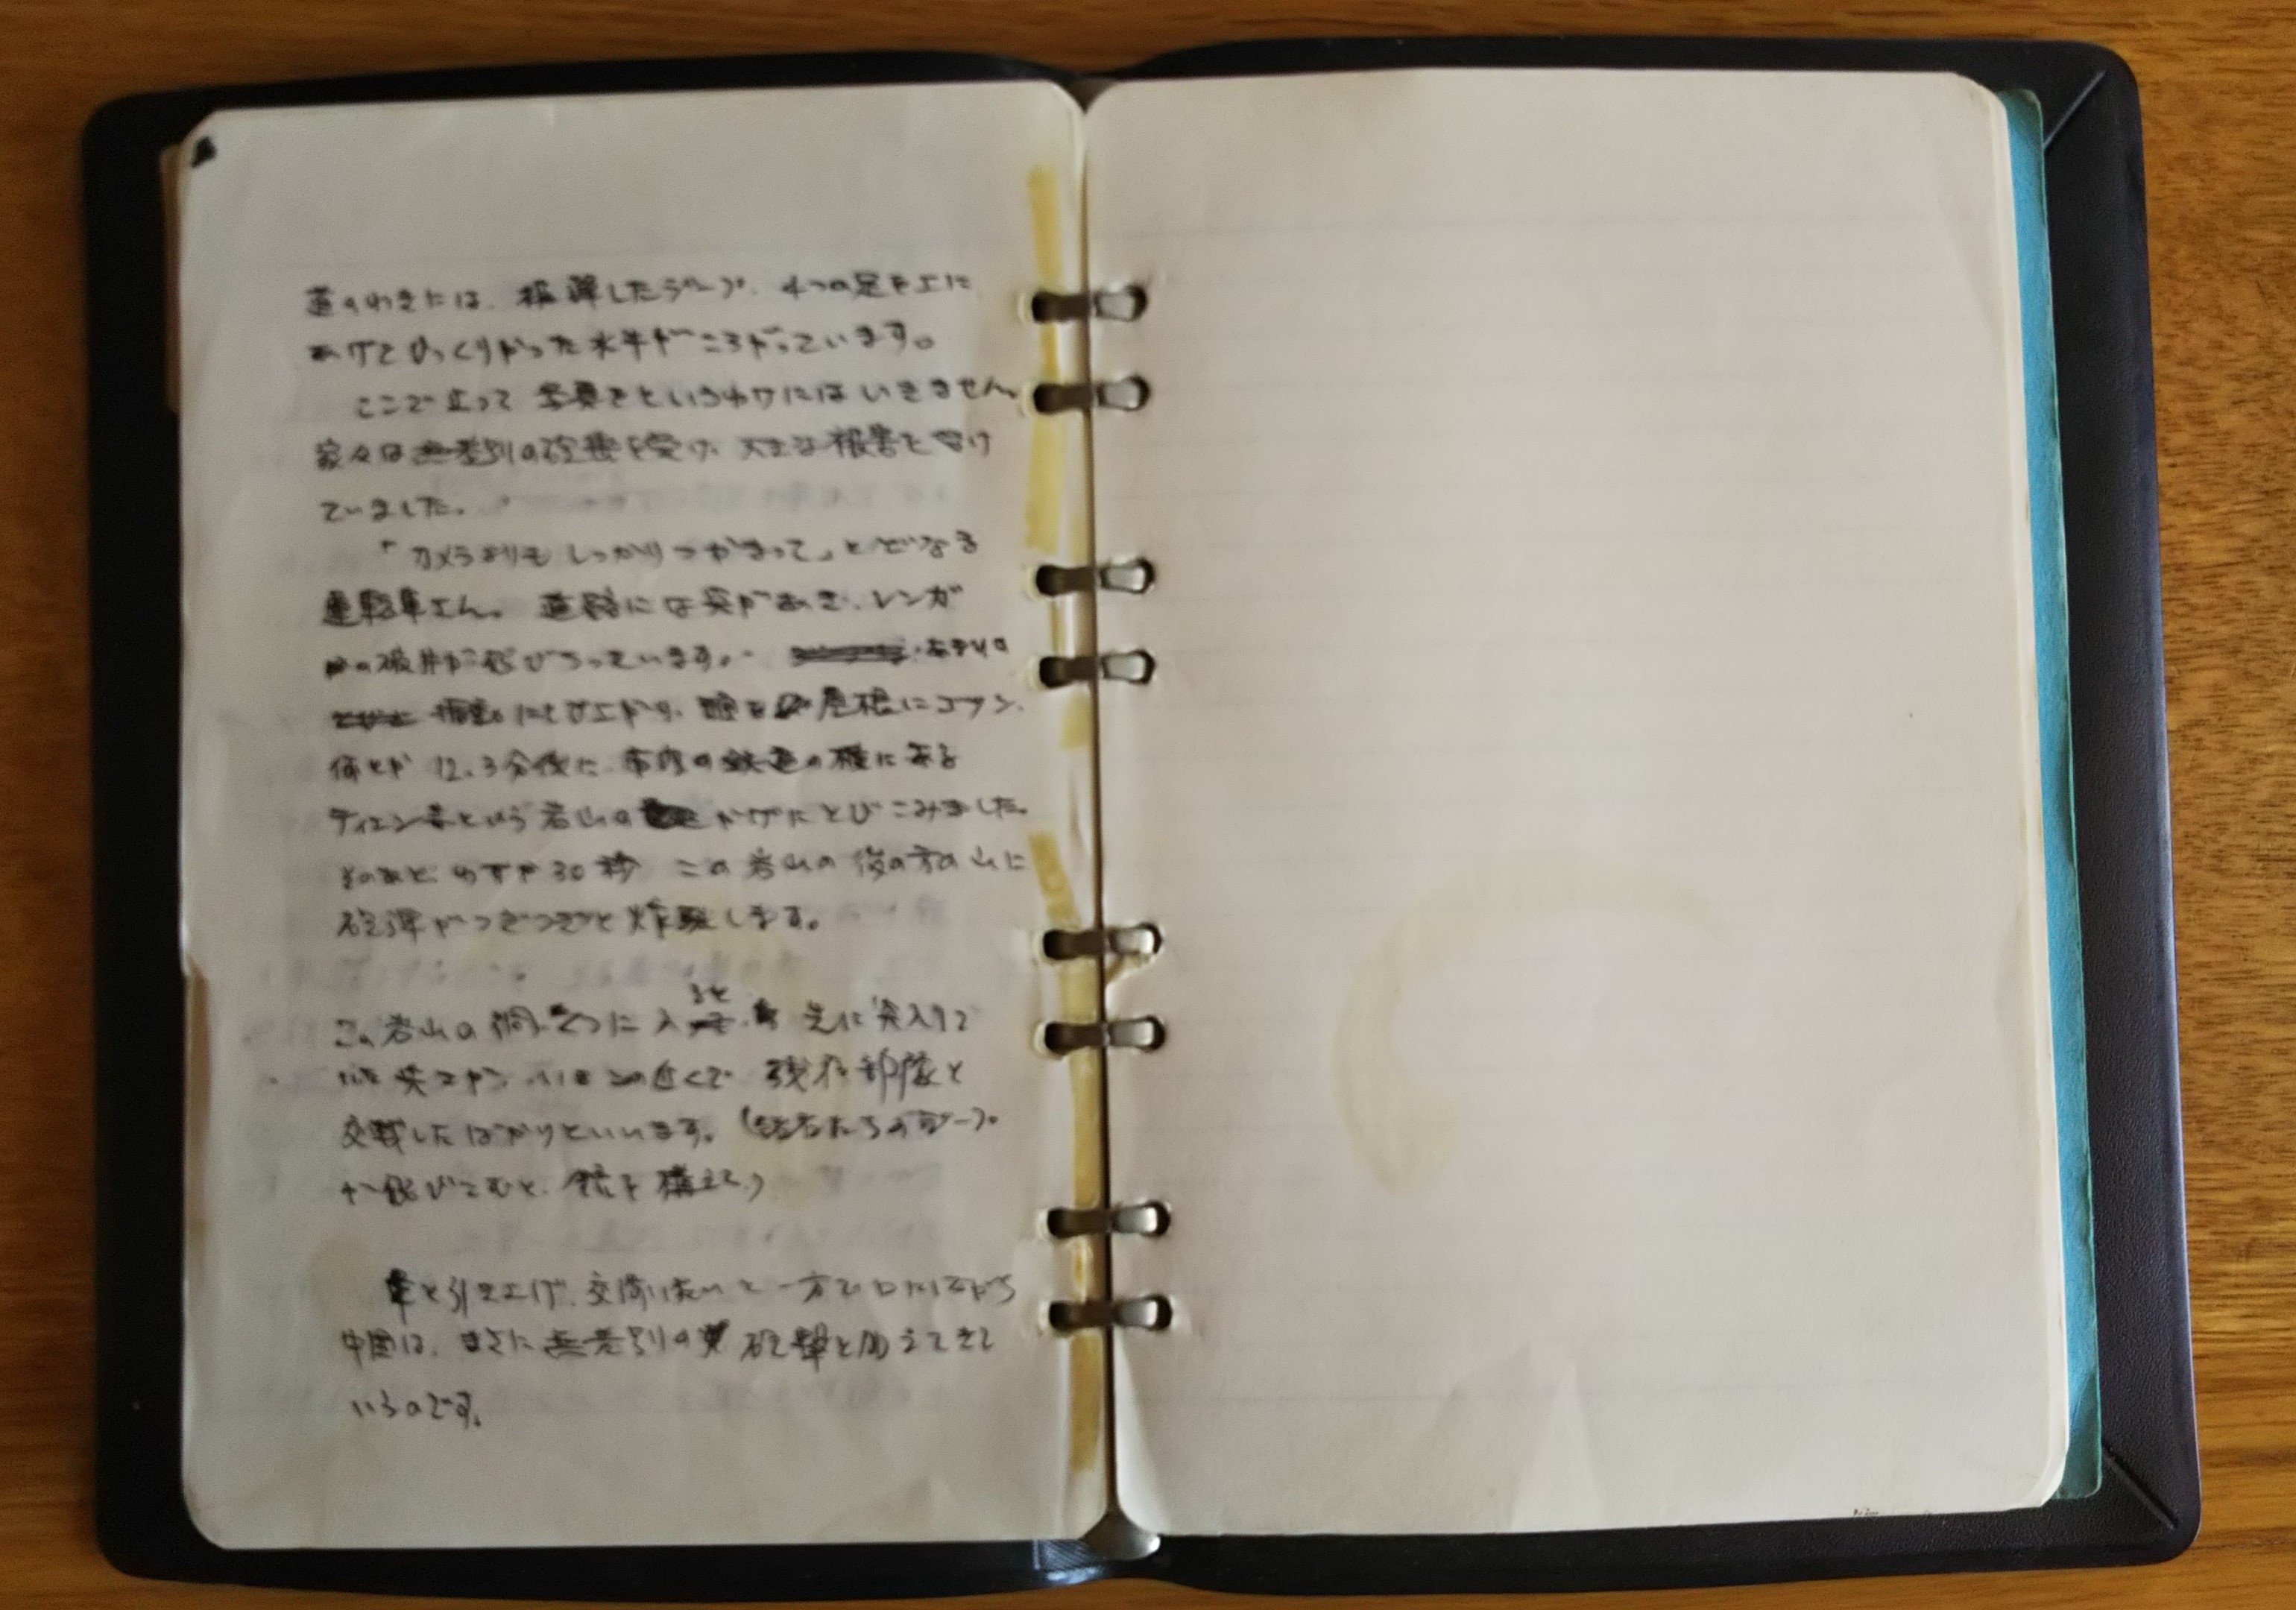 道のわきには、横転したジープ、4つの足を上に
あげてひっくりかった水牛がころがっています。
ここで止って写真をというわけにはいきません。
家々は無差別の砲撃を受け、大きな被害を受け
ていました。
「カメラよりもしっかりつかまって」とどなる
運転車さん。道路には穴があき、レンガ
の破片が飛びちっています。あまりの
振動にとび上がり、頭を屋根にゴツン、
何とか12、3分後に、市内の鉄道の横にある
ティエン寺という岩山のかげにとびこみました。
そのあと、わずか30秒 この岩山の後の方の山に
砲弾がつぎつぎと炸裂します。
この岩山の洞くつに入ると 先に突入して
いた 近くで 残存部隊と
交戦したばかりといいます。(記者たちのジープ
が飛びこむと、銃を構えて)
軍を引き上げ、交渉したいと一方でいいながら
中国は、まさに無差別の砲撃を加えてきて
いるのです。